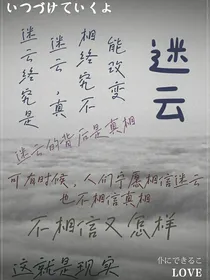 いつづけていくよ
迷云
迷云终究是
迷云，真
相终究不
能改变
迷云的背后是真相
可有时候，人们宁愿相信迷云
也不相信真相
不相信又怎样
这就是现实
仆にできるこ
LOVE